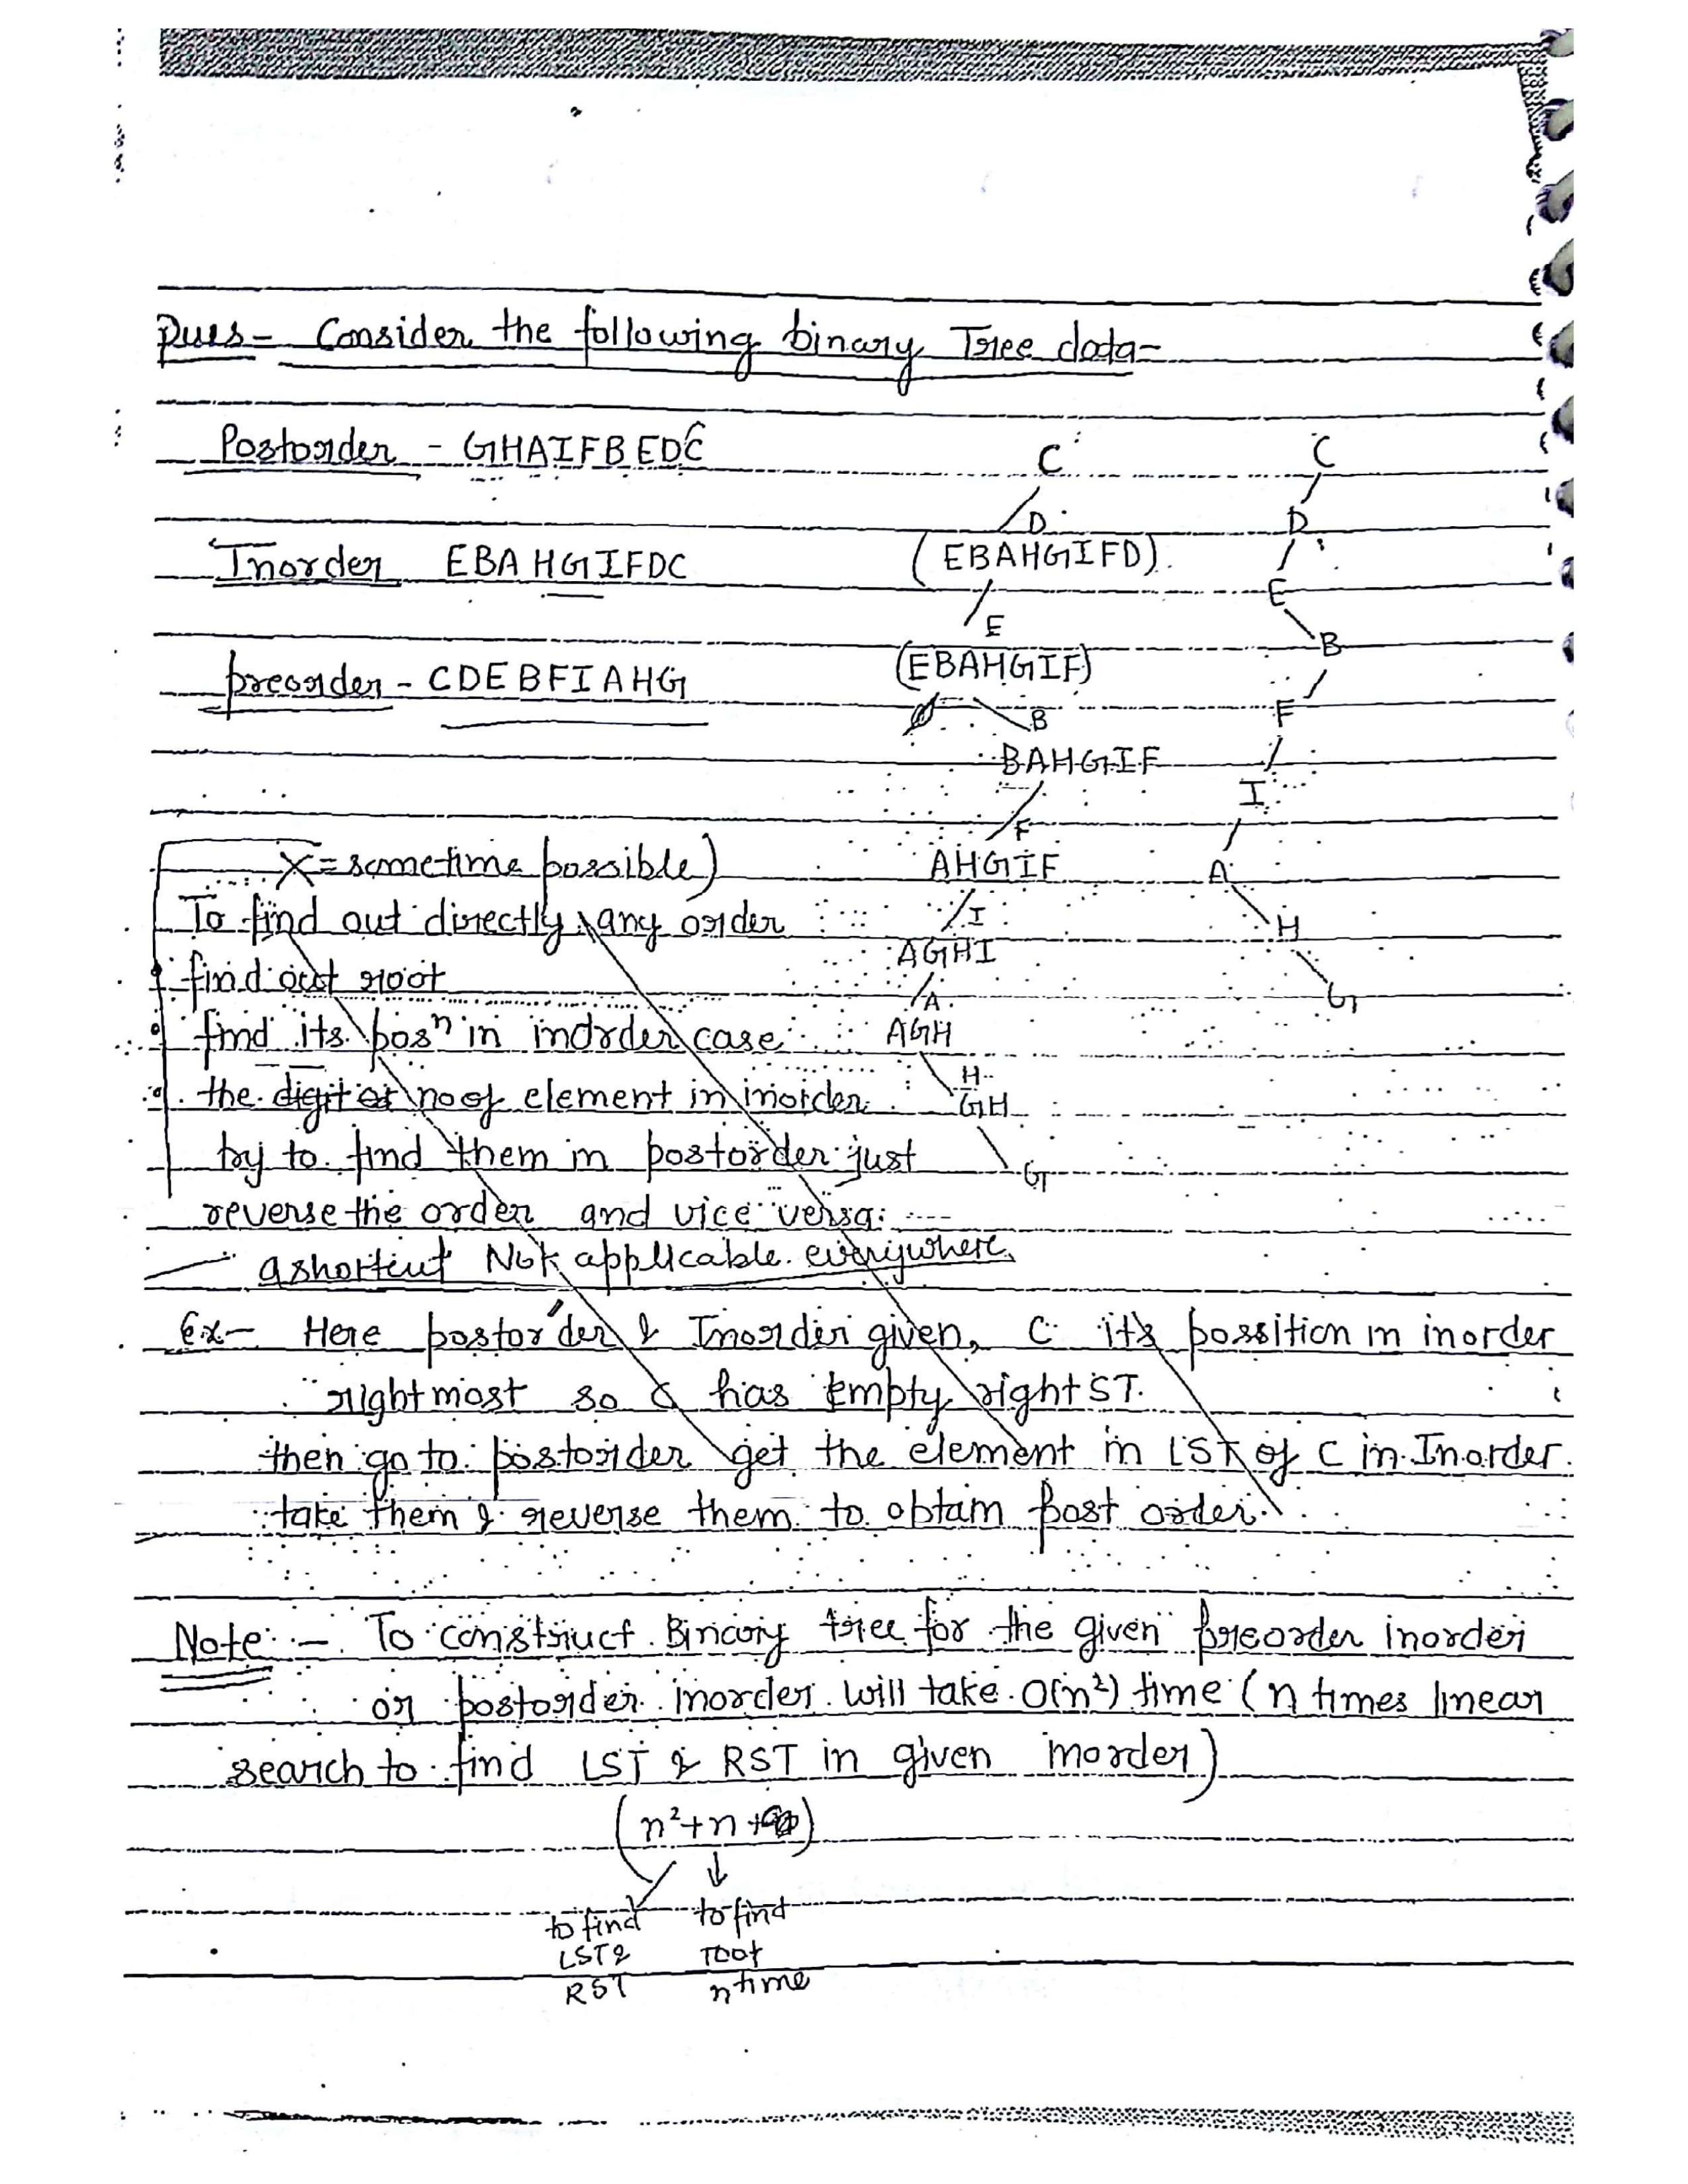 Ques- Consider the following binary Tree data-
Postorder - GHAIFBEDC
Inorder EBAHGIFDC
preorder - CDEBFIAHG
C
D
(EBAHGIFD)
E
(EBAHGIF)
ø B
BAHGIF
F
AHGIF
I
AGHI
A
AGH
H
GH
G
C
D
E
B
F
I
A
H
G
X = sometime possible)
To find out directly any order
find out root
find its posⁿ in inorder case
the digit or no of element in inorder
try to find them in postorder just
reverse the order and vice versa
a shortcut Not applicable everywhere
Ex- Here postorder & Inorder given, C its possition in inorder
rightmost so C has empty right ST.
then go to postorder get the element in LST of C in Inorder.
take them & reverse them to obtain post order.
Note :- To construct Binary tree for the given preorder inorder
or postorder inorder will take O(n²) time (n times linear
search to find LST & RST in given inorder)
(n²+n+ )
to find
LST &
RST
to find
root
n time